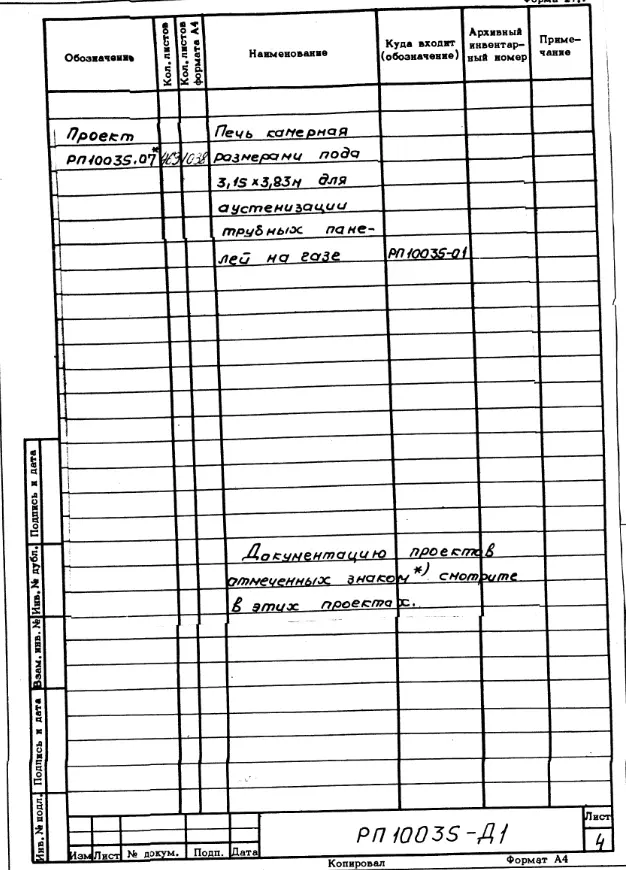 Обозначение
Кол. листов
Кол. листов формата А4
Наименование
Куда входит
(обозначение)
Архивный
инвентар-
ный номер
Приме-
чание
Проект
РП10035.07*
Печь камерная
размерами пода
3,15 х 3,83м для
аустенизации
трубных пане-
лей на газе
РП10035-01
Документацию проектов
отмеченных знаком *) смотрите
в этих проектах.
Подпись и дата
Инв. № дубл.
Взам. инв. №
Подпись и дата
Инв. № подл.
Изм Лист № докум. Подп. Дата
РП10035-Д1
Лист
4
Копировал
Формат А4